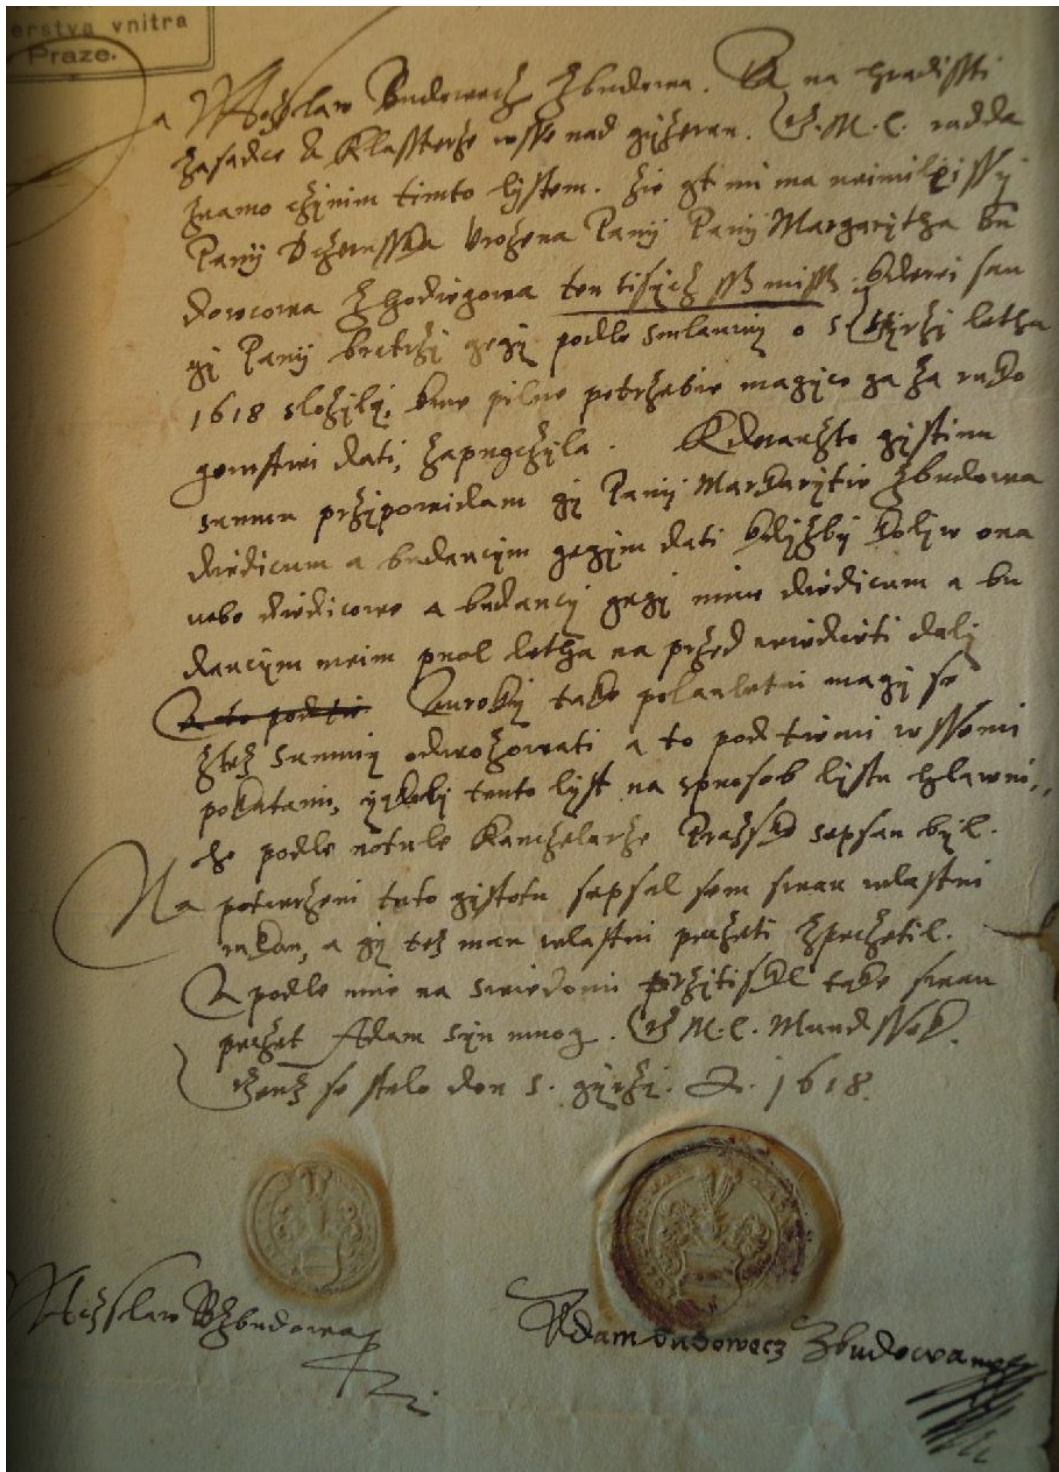 erstva vnitra
Praze.
a Waczslaw Budowecz Zbudowa. A na hradissti
Zasadce A Klassterze wsse nad gizerau. G. M. C. radda
znamo czinim timto lystem. Zie gt mi ma neimileissy
Panij Dczerusska Urozena Panij Panij Margarytha Bu
dowcowa Zhodiegowa ten tisicz ssß missß kderei sau
gi Panij bratrzi gegi podle smlauwij o S. girzi letha
1618 slozili, kme pilne potrzebie magice ga za ruko
gemstwi dati, zapugczila. Kderauzto gistinu
summu przipowidam gi Panij Markarytie Zbudowa
diedicum a budaucim gegim dati kdizbij koliw ona
nebo diedicowe a budaucy gegi mnie diedicum a bu
daucym meim puol letha na przed wiedieti dali
A to podtie Auroky take polauletni magi se
ztez summy odwozowati a to pod tiemi wssemi
pokutami, yakobi tento lyst na spuosob lystu hlawni,,
ho podle notule Kanczelarze Prazske sepsan byl.
Na potwrzeni tuto gistotu sepsal sem swau wlastni
rukau, a gi tez mau wlastni peczeti zpeczetil.
A podle mne na swiedomi przitiskl take swau
peczet Adam syn mug. G M. C. Mundssek.
Genz se stalo den S. girzi. A. 1618.
Waczslaw Bzbudowa
Adam budowecz Zbudowa